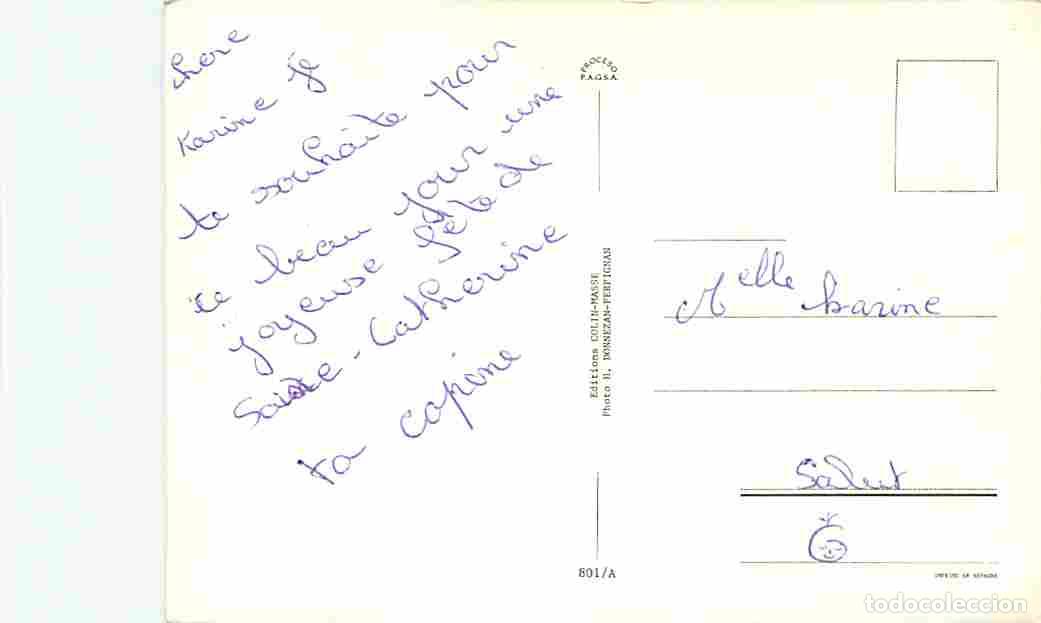 chere
Karine je
te souhaite pour
ce beau jour une
joyeuse fête de
Sainte-Catherine
ta copine
PROCESO
P.A.G.S.A.
Editions COLIN-MASSE
Photo H. DONNEZAN-PERPIGNAN
801/A
Melle karine
Salut
IMPRIMÉ EN ESPAGNE
todocoleccion